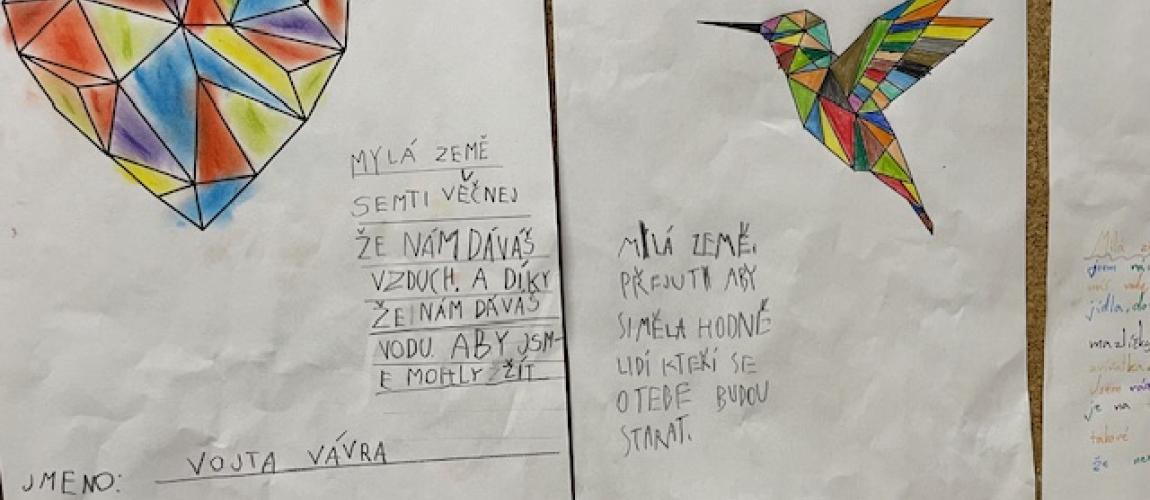 MYLÁ ZEMĚ
SEMTI VĚČNEJ
ŽE NÁM DÁVÁŠ
VZDUCH. A DÍKY
ŽE NÁM DÁVÁŠ
VODU. ABY JSM-
E MOHLY ŽÍT
JMENO: VOJTA VÁVRA
MILÁ ZEMĚ,
PŘEJUTI ABY
SIMĚLA HODNĚ
LIDÍ KTEŘÍ SE
OTEBE BUDOU
STARAT.
Milá
jsem
jídla, do
mazlíčky
je na
takové
že